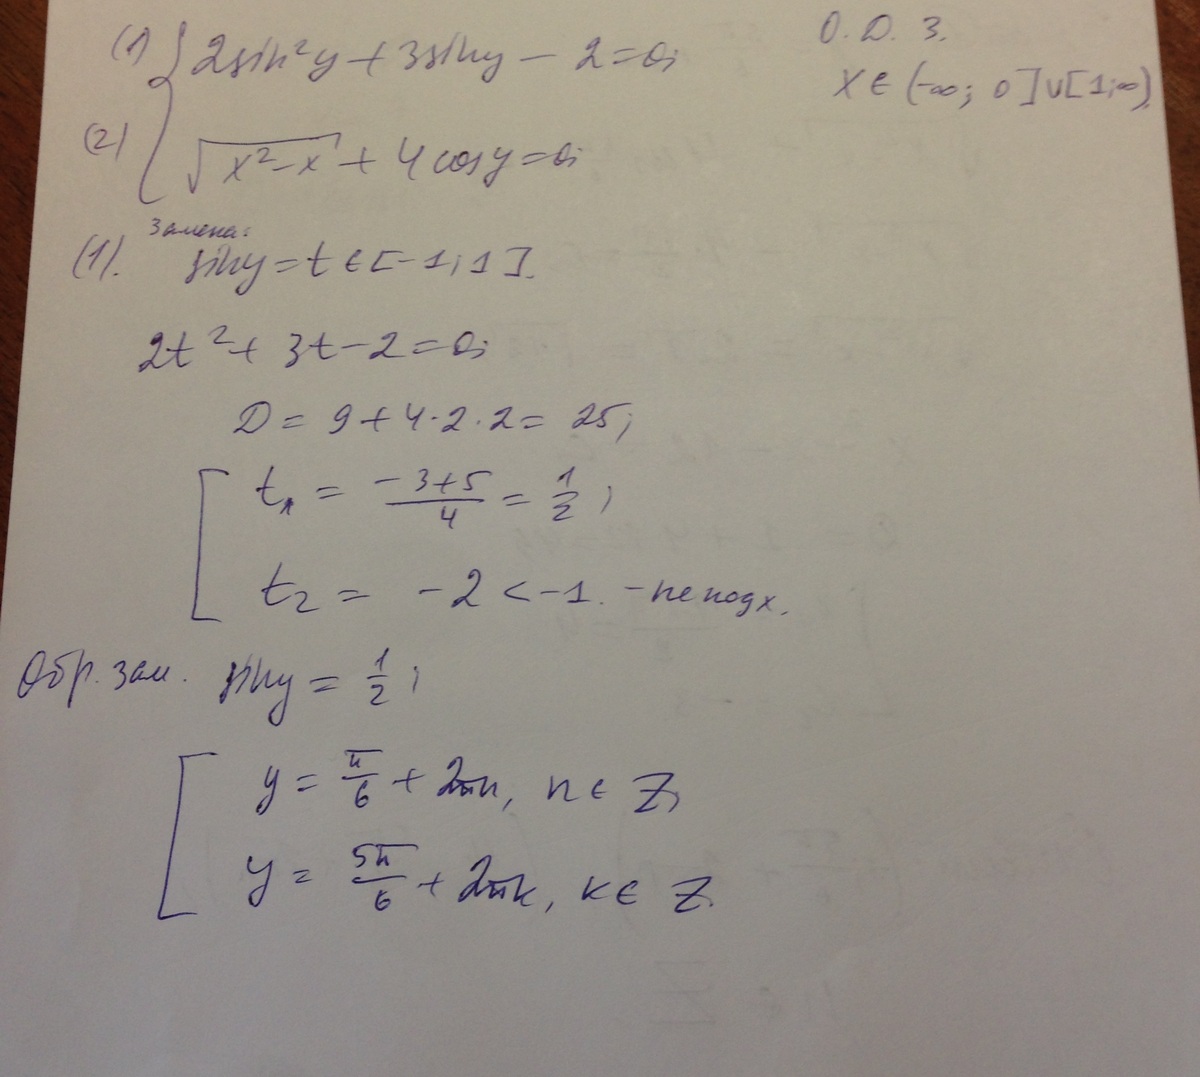 (1) 2sin²y + 3siny – 2 = 0; О.D.З.
x ∈ (-∞; 0] ∪ [1; ∞)
(2) √(x² – x) + 4cosy = 0;
Замена:
(1). siny = t ∈ [-1; 1].
2t² + 3t – 2 = 0;
D = 9 + 4·2·2 = 25;
t₁ = (-3+5)/4 = 1/2;
t₂ = -2 < -1. – не подх.
Обр. зам. siny = 1/2;
y = π/6 + 2πn, n ∈ Z,
y = 5π/6 + 2πk, k ∈ Z.